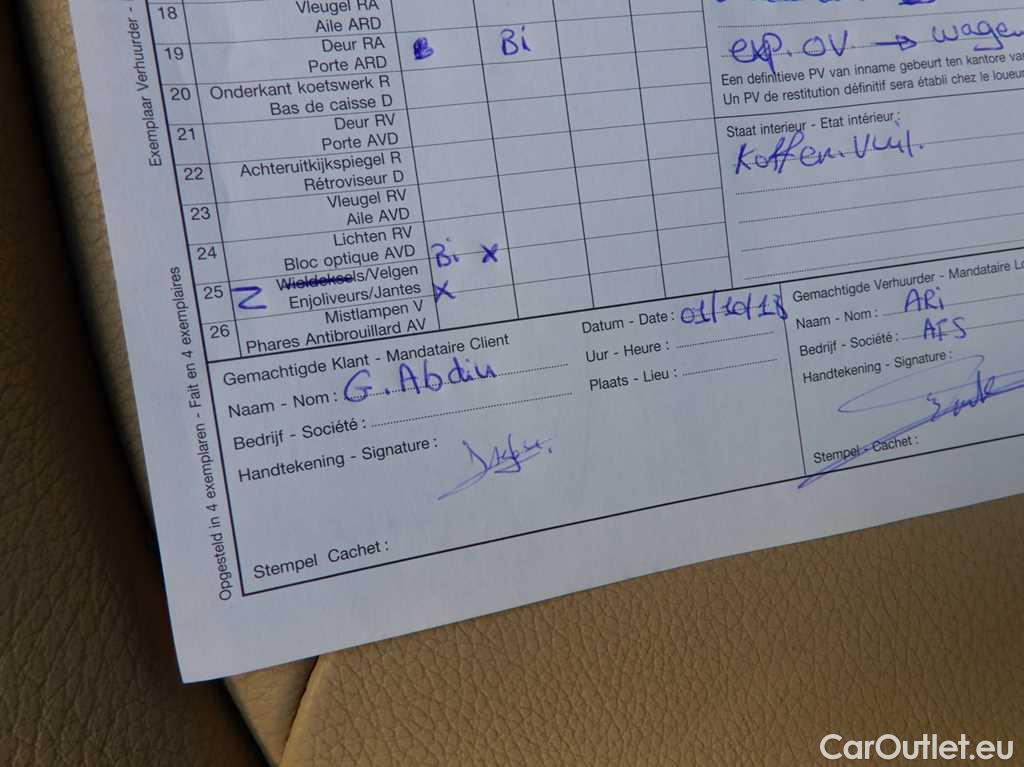 18
Vleugel RA
Aile ARD
19
Deur RA
Porte ARD
B
Bi
20
Onderkant koetswerk R
Bas de caisse D
21
Deur RV
Porte AVD
22
Achteruitkijkspiegel R
Rétroviseur D
23
Vleugel RV
Aile AVD
24
Lichten RV
Bloc optique AVD
Bi x
25
Z
Wieldeksels/Velgen
Enjoliveurs/Jantes
x
26
Mistlampen V
Phares Antibrouillard AV
exp. OV → wagen
Een definitieve PV van inname gebeurt ten kantore van
Un PV de restitution définitif sera établi chez le loueur
Staat interieur - Etat intérieur :
Koffer vuil.
Gemachtigde Klant - Mandataire Client
Naam - Nom : G. Abdin
Bedrijf - Société :
Handtekening - Signature :
Stempel Cachet :
Datum - Date : 01/10/18
Uur - Heure :
Plaats - Lieu :
Gemachtigde Verhuurder - Mandataire Lo
Naam - Nom : ARi
Bedrijf - Société : AFS
Handtekening - Signature :
Stempel - Cachet :
Exemplaar Verhuurder -
Opgesteld in 4 exemplaren - Fait en 4 exemplaires
CarOutlet.eu